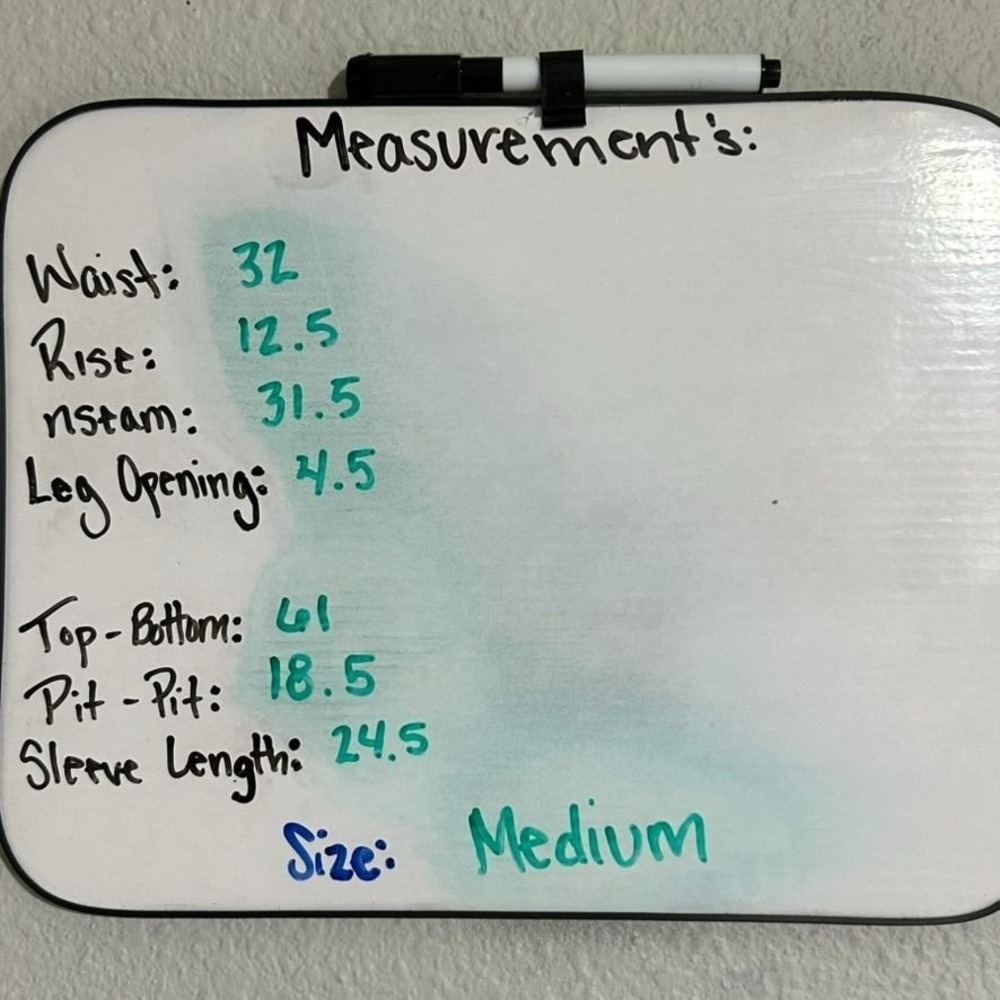 Measurement's:
Waist: 32
Rise: 12.5
nseam: 31.5
Leg Opening: 4.5
Top-Bottom: 61
Pit-Pit: 18.5
Sleeve Length: 24.5
Size: Medium